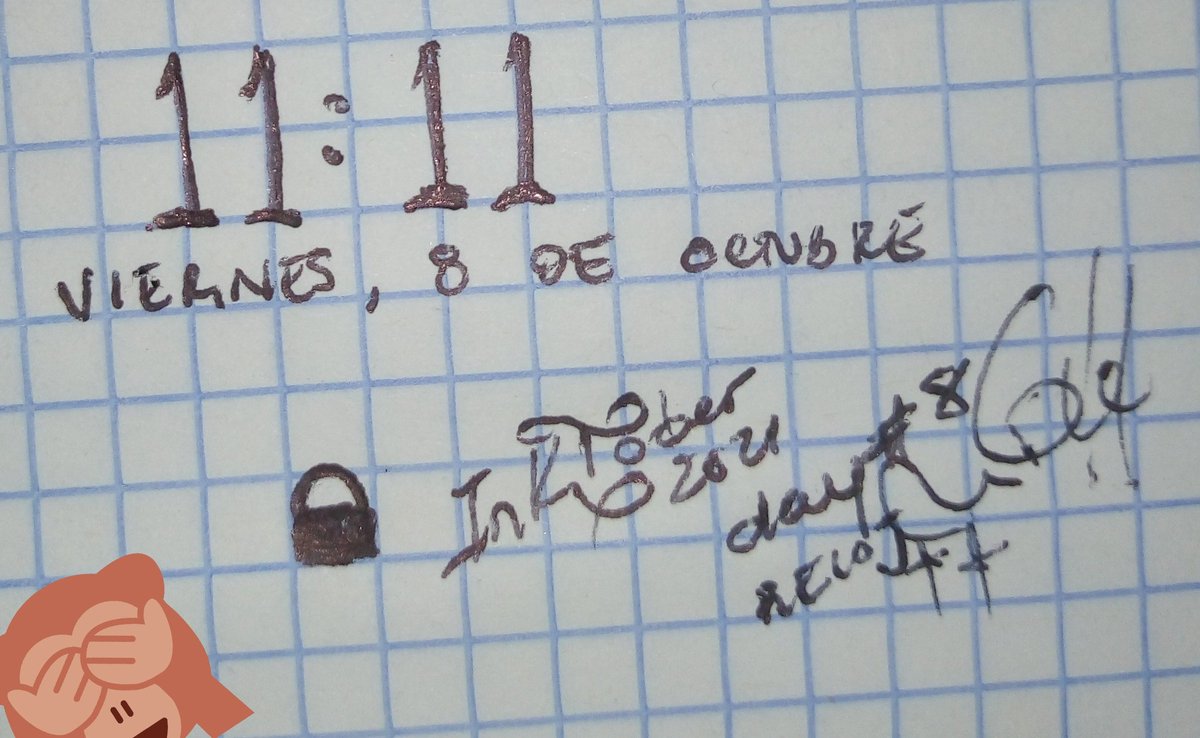 11:11
VIERNES, 8 DE OCTUBRE
InkTober
2021
day #8
RELOJ